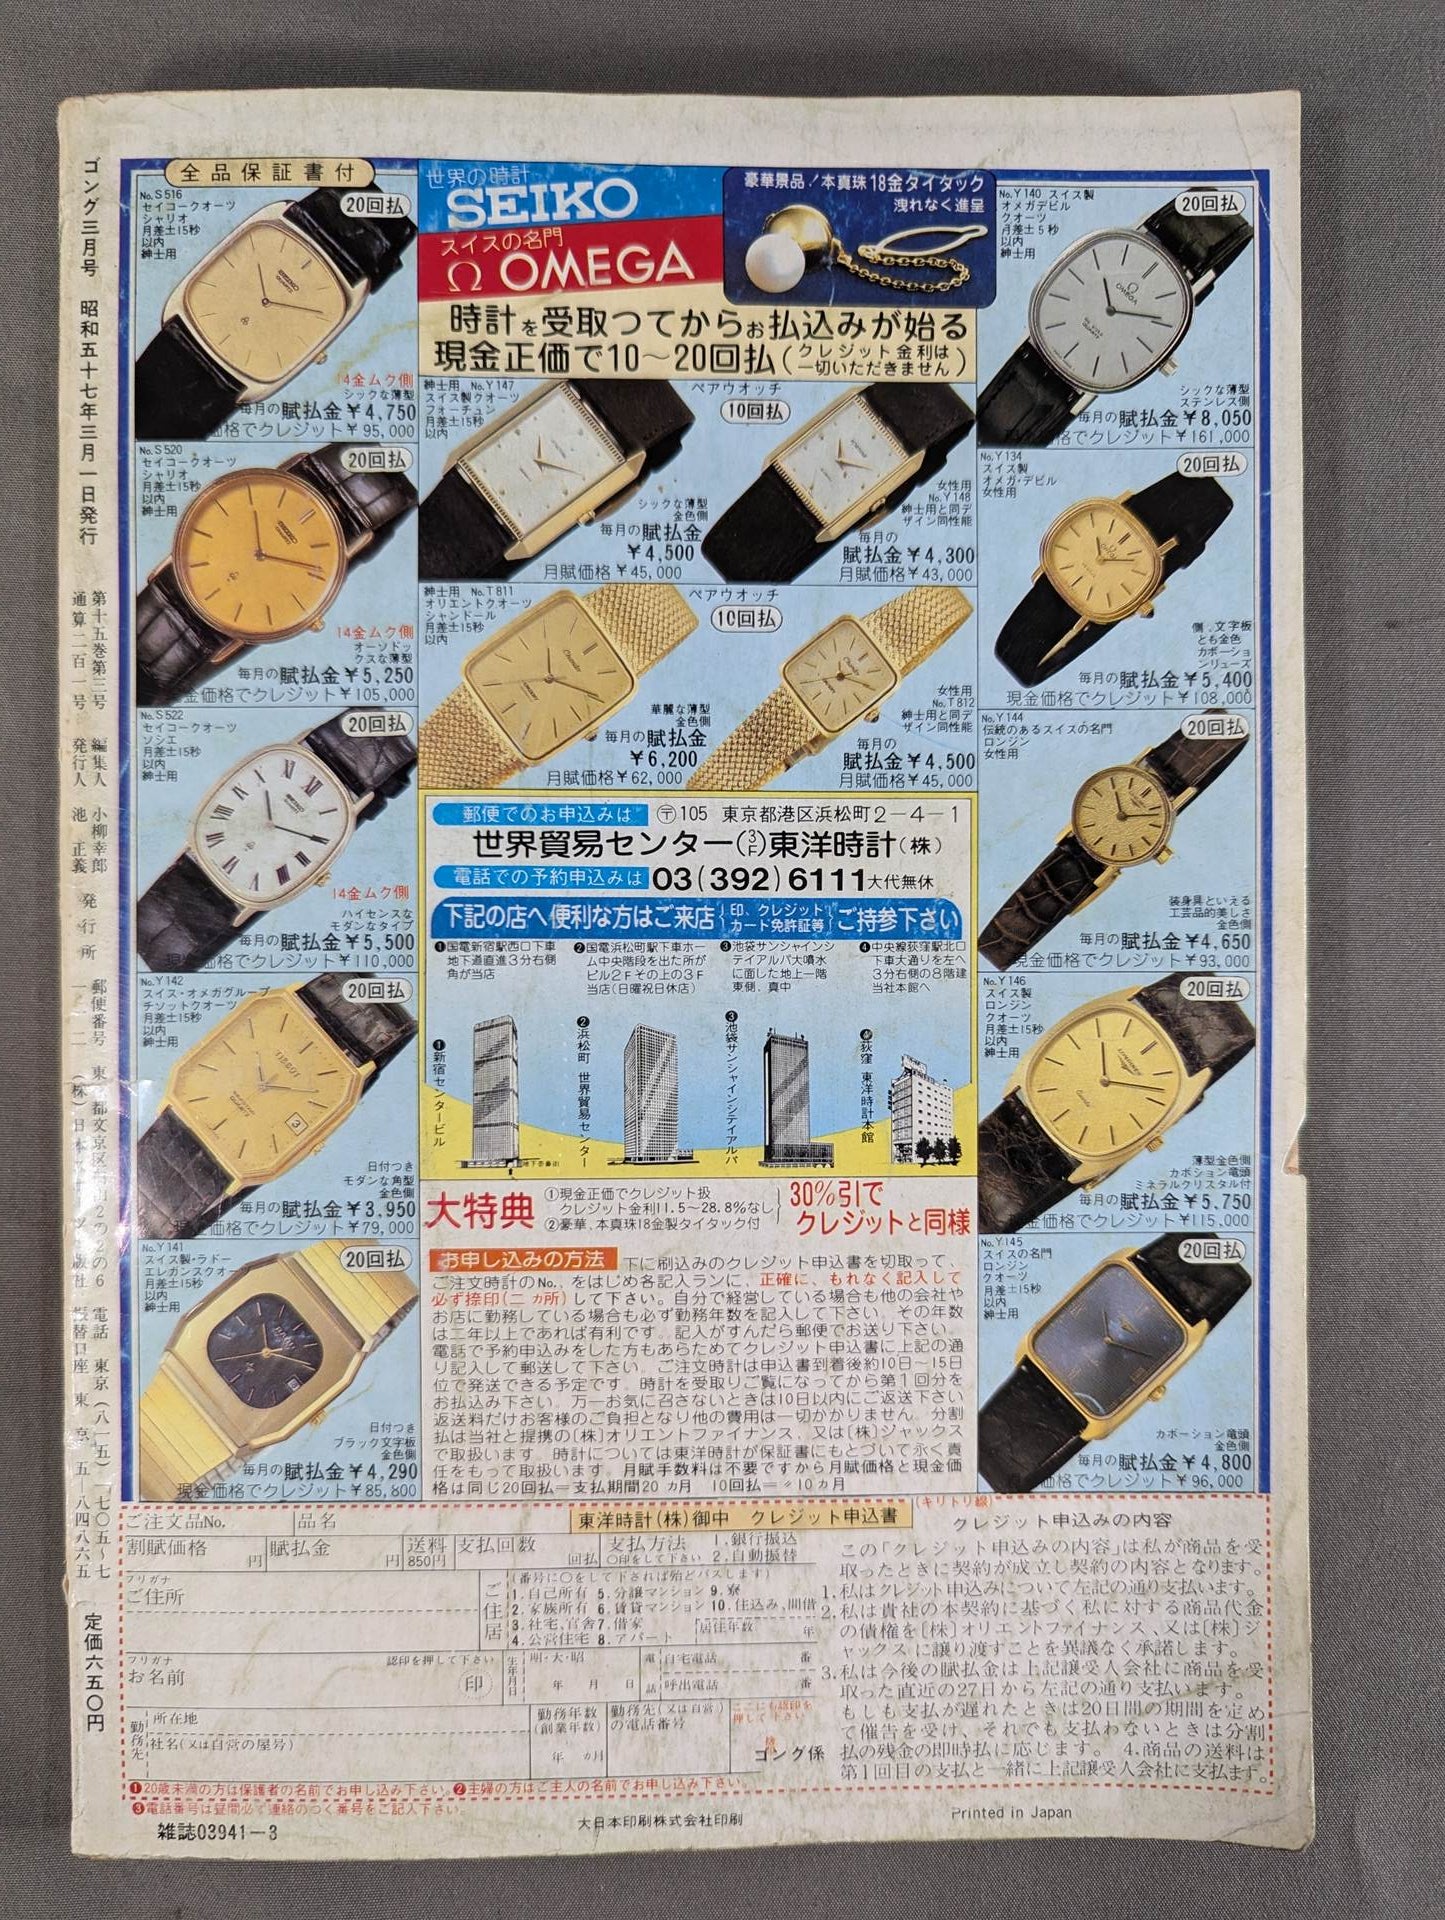 ゴング三月号 昭和五十七年三月一日発行
第十五巻第三号
通算二百一号
編集人 小柳幸郎
発行人 池 正義
発行所
定価六五〇円
全品保証書付
No.S516
セイコークオーツ
シャリオ
月差±15秒
以内
紳士用
20回払
14金ムク側
シックな薄型
毎月の賦払金¥4,750
価格でクレジット¥95,000
No.S520
セイコークオーツ
シャリオ
月差±15秒
以内
紳士用
20回払
14金ムク側
オーソドッ
クスな薄型
毎月の賦払金¥5,250
現金価格でクレジット¥105,000
No.S522
セイコークオーツ
ソシエ
月差±15秒
以内
紳士用
20回払
14金ムク側
ハイセンスな
モダンなタイプ
毎月の賦払金¥5,500
現金価格でクレジット¥110,000
No.Y142
スイス・オメガグループ
チソットクオーツ
月差±15秒
以内
紳士用
20回払
日付つき
モダンな角型
金色側
毎月の賦払金¥3,950
現金価格でクレジット¥79,000
No.Y141
スイス製・ラドー
エレガンスクオーツ
月差±15秒
以内
紳士用
20回払
日付つき
ブラック文字板
金色側
毎月の賦払金¥4,290
現金価格でクレジット¥85,800
世界の時計
SEIKO
スイスの名門
Ω OMEGA
豪華景品!本真珠18金タイタック
洩れなく進呈
時計を受取つてからお払込みが始る
現金正価で10〜20回払(クレジット金利は一切いただきません)
紳士用 No.Y147
スイス製クオーツ
フォーチュン
月差±15秒
以内
ペアウオッチ
10回払
シックな薄型
金色側
毎月の賦払金
¥4,500
月賦価格¥45,000
女性用
No.Y148
紳士用と同デ
ザイン同性能
毎月の
賦払金¥4,300
月賦価格¥43,000
紳士用 No.T811
オリエントクオーツ
シャンドール
月差±15秒
以内
ペアウオッチ
10回払
華麗な薄型
金色側
毎月の賦払金
¥6,200
月賦価格¥62,000
女性用
No.T812
紳士用と同デ
ザイン同性能
毎月の
賦払金¥4,500
月賦価格¥45,000
No.Y140 スイス製
オメガデビル
クオーツ
月差±5秒
以内
紳士用
20回払
シックな薄型
ステンレス側
毎月の賦払金¥8,050
格でクレジット¥161,000
No.Y134
スイス製
オメガ・デビル
女性用
20回払
側、文字板
とも金色
カボーショ
ンリューズ
毎月の賦払金¥5,400
現金価格でクレジット¥108,000
No.Y144
伝統のあるスイスの名門
ロンジン
女性用
20回払
装身具といえる
工芸品的美しさ
金色側
毎月の賦払金¥4,650
現金価格でクレジット¥93,000
No.Y146
スイス製
ロンジン
クオーツ
月差±15秒
以内
紳士用
20回払
薄型金色側
カボション竜頭
ミネラルクリスタル付
毎月の賦払金¥5,750
価格でクレジット¥115,000
No.Y145
スイスの名門
ロンジン
クオーツ
月差±15秒
以内
紳士用
20回払
カボーション竜頭
金色側
毎月の賦払金¥4,800
現金価格でクレジット¥96,000
郵便でのお申込みは 〒105 東京都港区浜松町2-4-1
世界貿易センター(3F)東洋時計(株)
電話での予約申込みは 03(392)6111大代無休
下記の店へ便利な方はご来店{印、クレジットカード免許証等}ご持参下さい
❶国電新宿駅西口下車
地下道直進3分右側
角が当店
❷国電浜松町駅下車ホー
ム中央階段を出た所が
ビル2Fその上の3F
当店(日曜祝日休店)
❸池袋サンシャインシ
テイアルパ大噴水
に面した地上一階
東側、真中
❹中央線荻窪駅北口
下車大通りを左へ
3分右側の8階建
当社本館へ
❶新宿センタービル
❷浜松町 世界貿易センター
❸池袋サンシャインシテイアルパ
❹荻窪 東洋時計本館
大特典
①現金正価でクレジット扱
クレジット金利11.5〜28.8%なし
②豪華、本真珠18金製タイタック付
30%引で
クレジットと同様
お申し込みの方法 下に刷込みのクレジット申込書を切取って、
ご注文時計のNo.、をはじめ各記入ランに、正確に、もれなく記入して
必ず捺印(二カ所)して下さい。自分で経営している場合も他の会社や
お店に勤務している場合も必ず勤務年数を記入して下さい。その年数
は二年以上であれば有利です。記入がすんだら郵便でお送り下さい。
電話で予約申込みをした方もあらためてクレジット申込書に上記の通
り記入して郵送して下さい。ご注文時計は申込書到着後約10日〜15日
位で発送できる予定です。時計を受取りご覧になってから第1回分を
お払込み下さい。万一お気に召さないときは10日以内にご返送下さい
返送料だけお客様のご負担となり他の費用は一切かかりません。分割
払は当社と提携の〔株〕オリエントファイナンス、又は〔株〕ジャックス
で取扱います。時計については東洋時計が保証書にもとづいて永く責
任をもって取扱います。月賦手数料は不要ですから月賦価格と現金価
格は同じ20回払=支払期間20カ月 10回払=〃10カ月
(キリトリ線)
ご注文品No. 品名
東洋時計(株)御中 クレジット申込書
割賦価格 円 賦払金 円 送料850円 支払回数 回払 支払方法 ○印をして下さい 1.銀行振込 2.自動振替
フリガナ
ご住所
ご住居
(番号に○をして下されば殆どパスします)
1.自己所有 5.分譲マンション 9.寮
2.家族所有 6.賃貸マンション 10.住込み、間借
3.社宅、官舎 7.借家
4.公営住宅 8.アパート
居住年数 年
フリガナ
お名前
認印を押して下さい
印
生年月日
明・大・昭
年 月 日
電話
自宅電話 番
呼出電話 番
勤務先
所在地
社名(又は自営の屋号)
勤務年数
(創業年数)
年 カ月
勤務先(又は自営)
の電話番号
ここにも認印を
押して下さい
ゴング係
❶20歳未満の方は保護者の名前でお申し込み下さい。❷主婦の方はご主人の名前でお申し込み下さい。
❸電話番号は昼間必ず連絡のつく番号をご記入下さい。
クレジット申込みの内容
この「クレジット申込みの内容」は私が商品を受
取ったときに契約が成立し契約の内容となります。
1.私はクレジット申込みについて左記の通り支払います。
2.私は貴社の本契約に基づく私に対する商品代金
の債権を〔株〕オリエントファイナンス、又は〔株〕ジ
ャックスに譲り渡すことを異議なく承諾します。
3.私は今後の賦払金は上記譲受人会社に商品を受
取った直近の27日から左記の通り支払います。
もしも支払が遅れたときは20日間の期間を定め
て催告を受け、それでも支払わないときは分割
払の残金の即時払に応じます。 4.商品の送料は
第1回目の支払と一緒に上記譲受人会社に支払ます。
雑誌03941-3
大日本印刷株式会社印刷
Printed in Japan